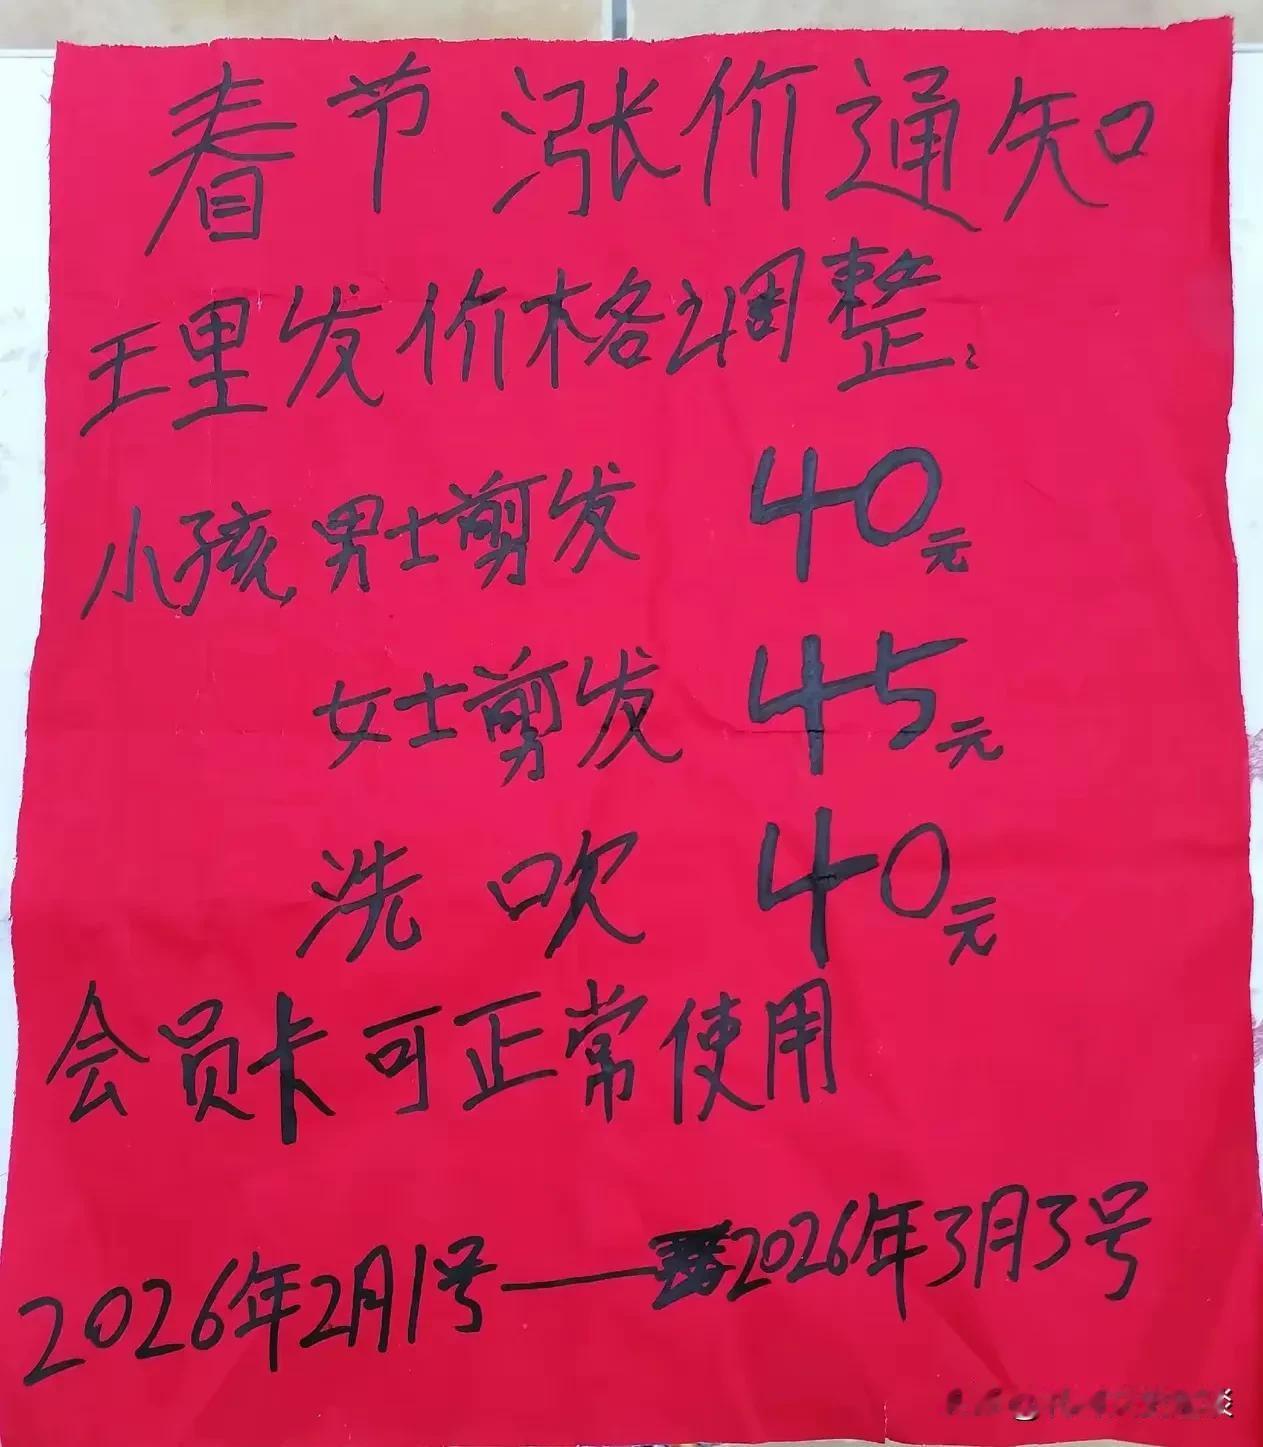 春节涨价通知
王里发价格调整：
小孩 男士剪发 40元
女士剪发 45元
洗 吹 40元
会员卡可正常使用
2026年2月1号——2026年3月3号